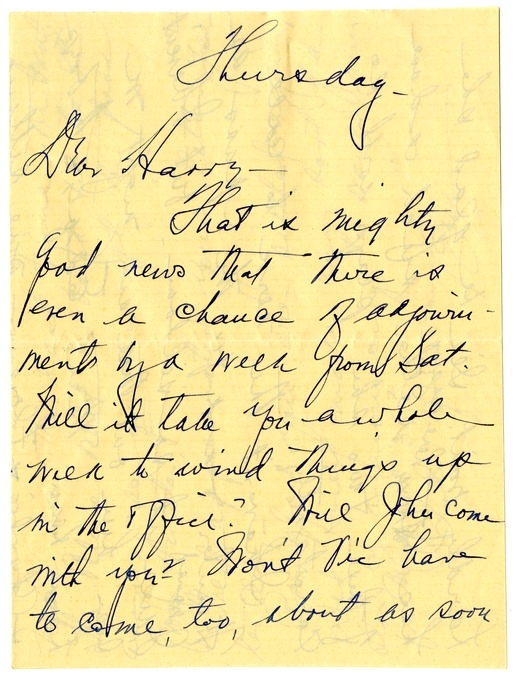 Thursday-
Dear Harry-
That is mighty
good news that there is
even a chance of adjourn-
ments by a week from Sat.
Will it take you a whole
week to wind things up
in the office? Will John come
with you? Won't Vic have
to come, too, about as soon